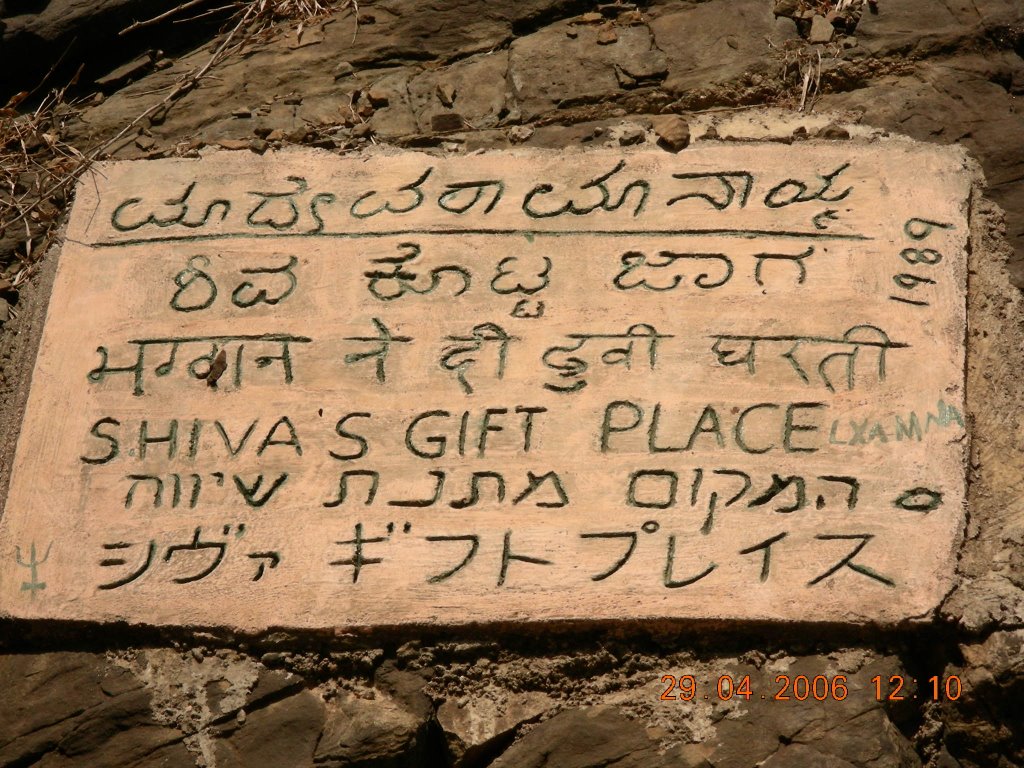 ಶಿವ ಕೊಟ್ಟ ಜಾಗ
1989
भगवान ने दी हुवी धरती
SHIVA'S GIFT PLACE
LXAMNA
המקום מתנת שיווה
シヴァ ギフト プレイス
29.04.2006 12:10